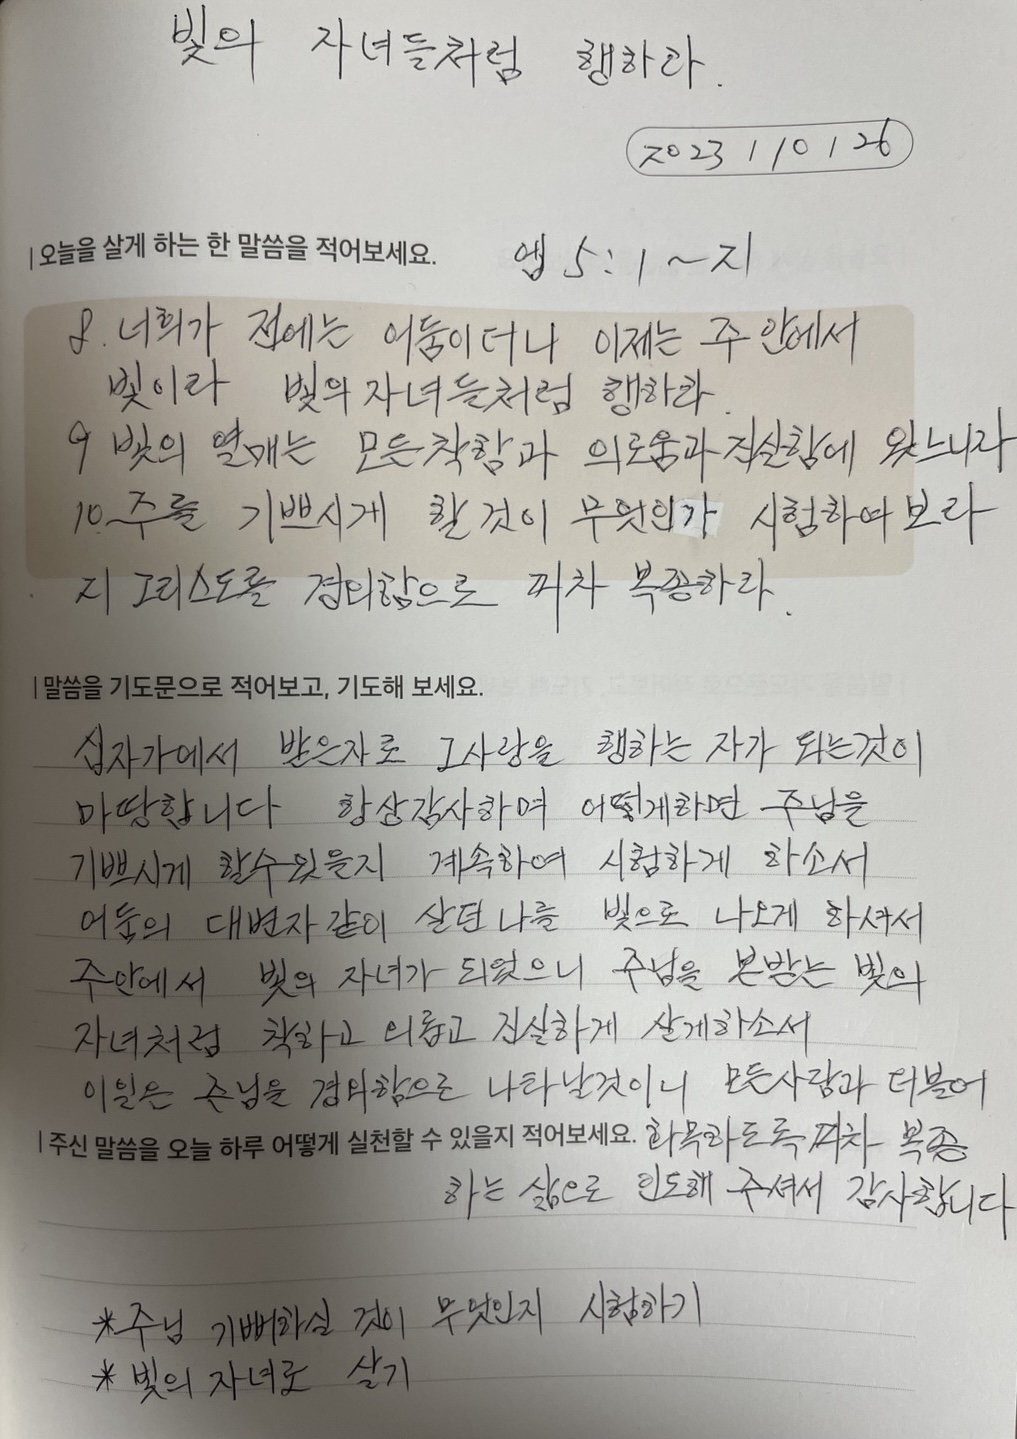 빛의 자녀들처럼 행하라.
2023 / 10 / 26
오늘을 살게 하는 한 말씀을 적어보세요. 엡 5:1~21
8. 너희가 전에는 어둠이더니 이제는 주 안에서
빛이라 빛의 자녀들처럼 행하라.
9 빛의 열매는 모든 착함과 의로움과 진실함에 있느니라
10. 주를 기쁘시게 할 것이 무엇인가 시험하여 보라
21 그리스도를 경외함으로 피차 복종하라.
말씀을 기도문으로 적어보고, 기도해 보세요.
십자가에서 받은자로 그사랑을 행하는 자가 되는것이
마땅합니다 항상감사하며 어떻게하면 주님을
기쁘시게 할수있을지 계속하여 시험하게 하소서
어둠의 대변자같이 살던 나를 빛으로 나오게 하셔서
주안에서 빛의 자녀가 되었으니 주님을 본받는 빛의
자녀처럼 착하고 의롭고 진실하게 살게하소서
이일은 주님을 경외함으로 나타날것이니 모든사람과 더불어
주신 말씀을 오늘 하루 어떻게 실천할 수 있을지 적어보세요. 화목하도록 피차 복종
하는 삶으로 인도해 주셔서 감사합니다
*주님 기뻐하실 것이 무엇인지 시험하기
* 빛의 자녀로 살기